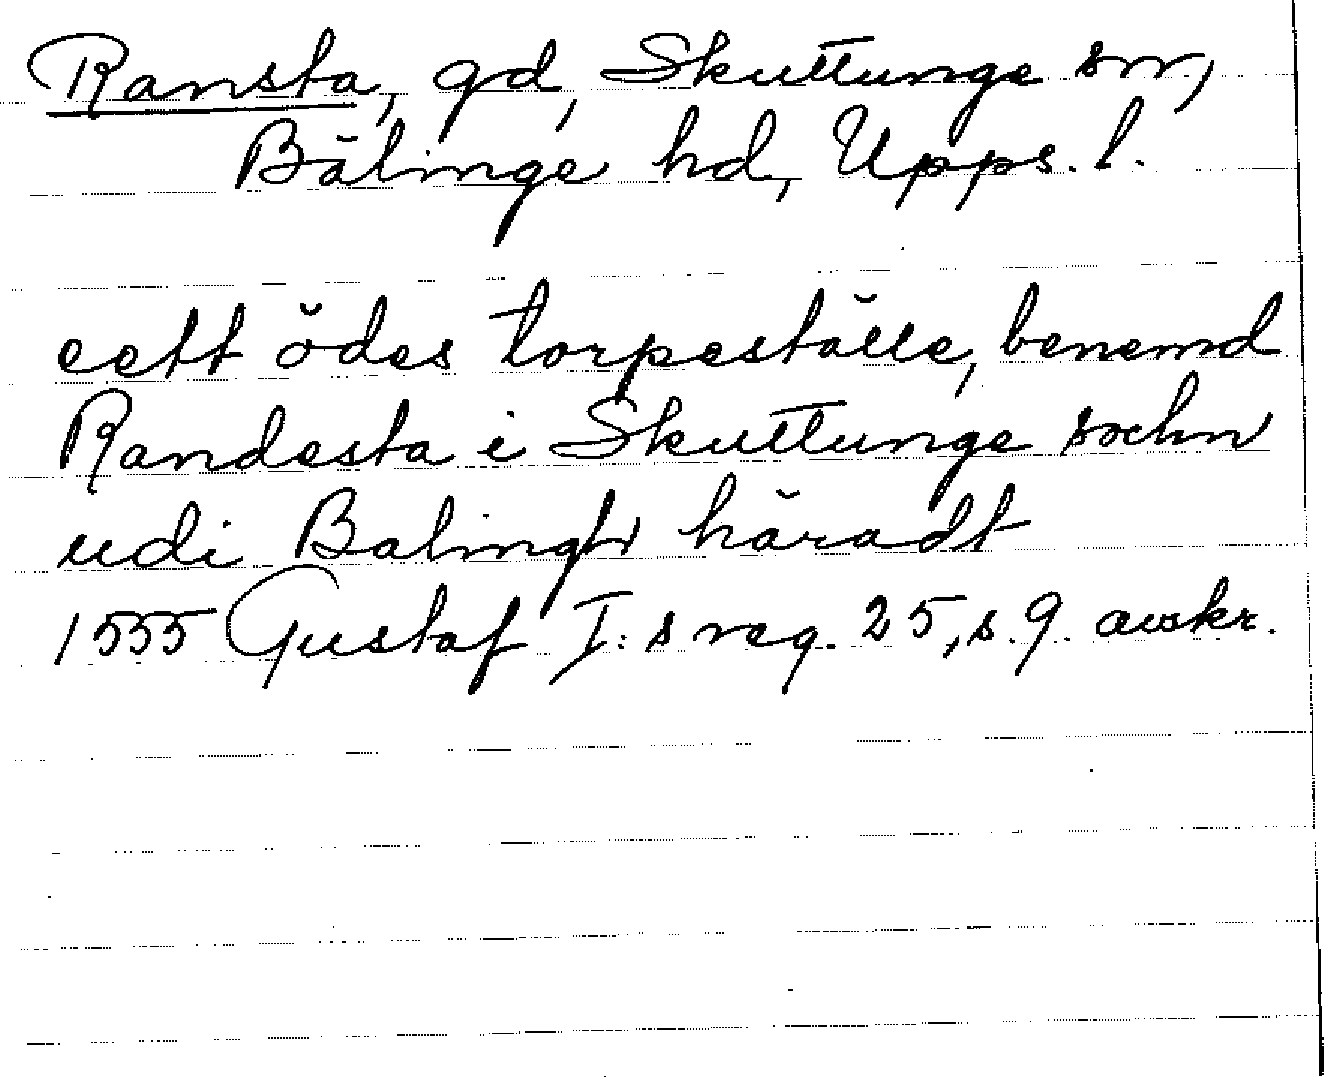 Ransta, gd, Skuttunge sn,
Bälinge hd, Upps. l.
eett ödes torpeställe, benemd
Randesta i Skuttunge sochn
udi Balingh häradt
1555 Gustaf I:s reg. 25, s. 9 avskr.